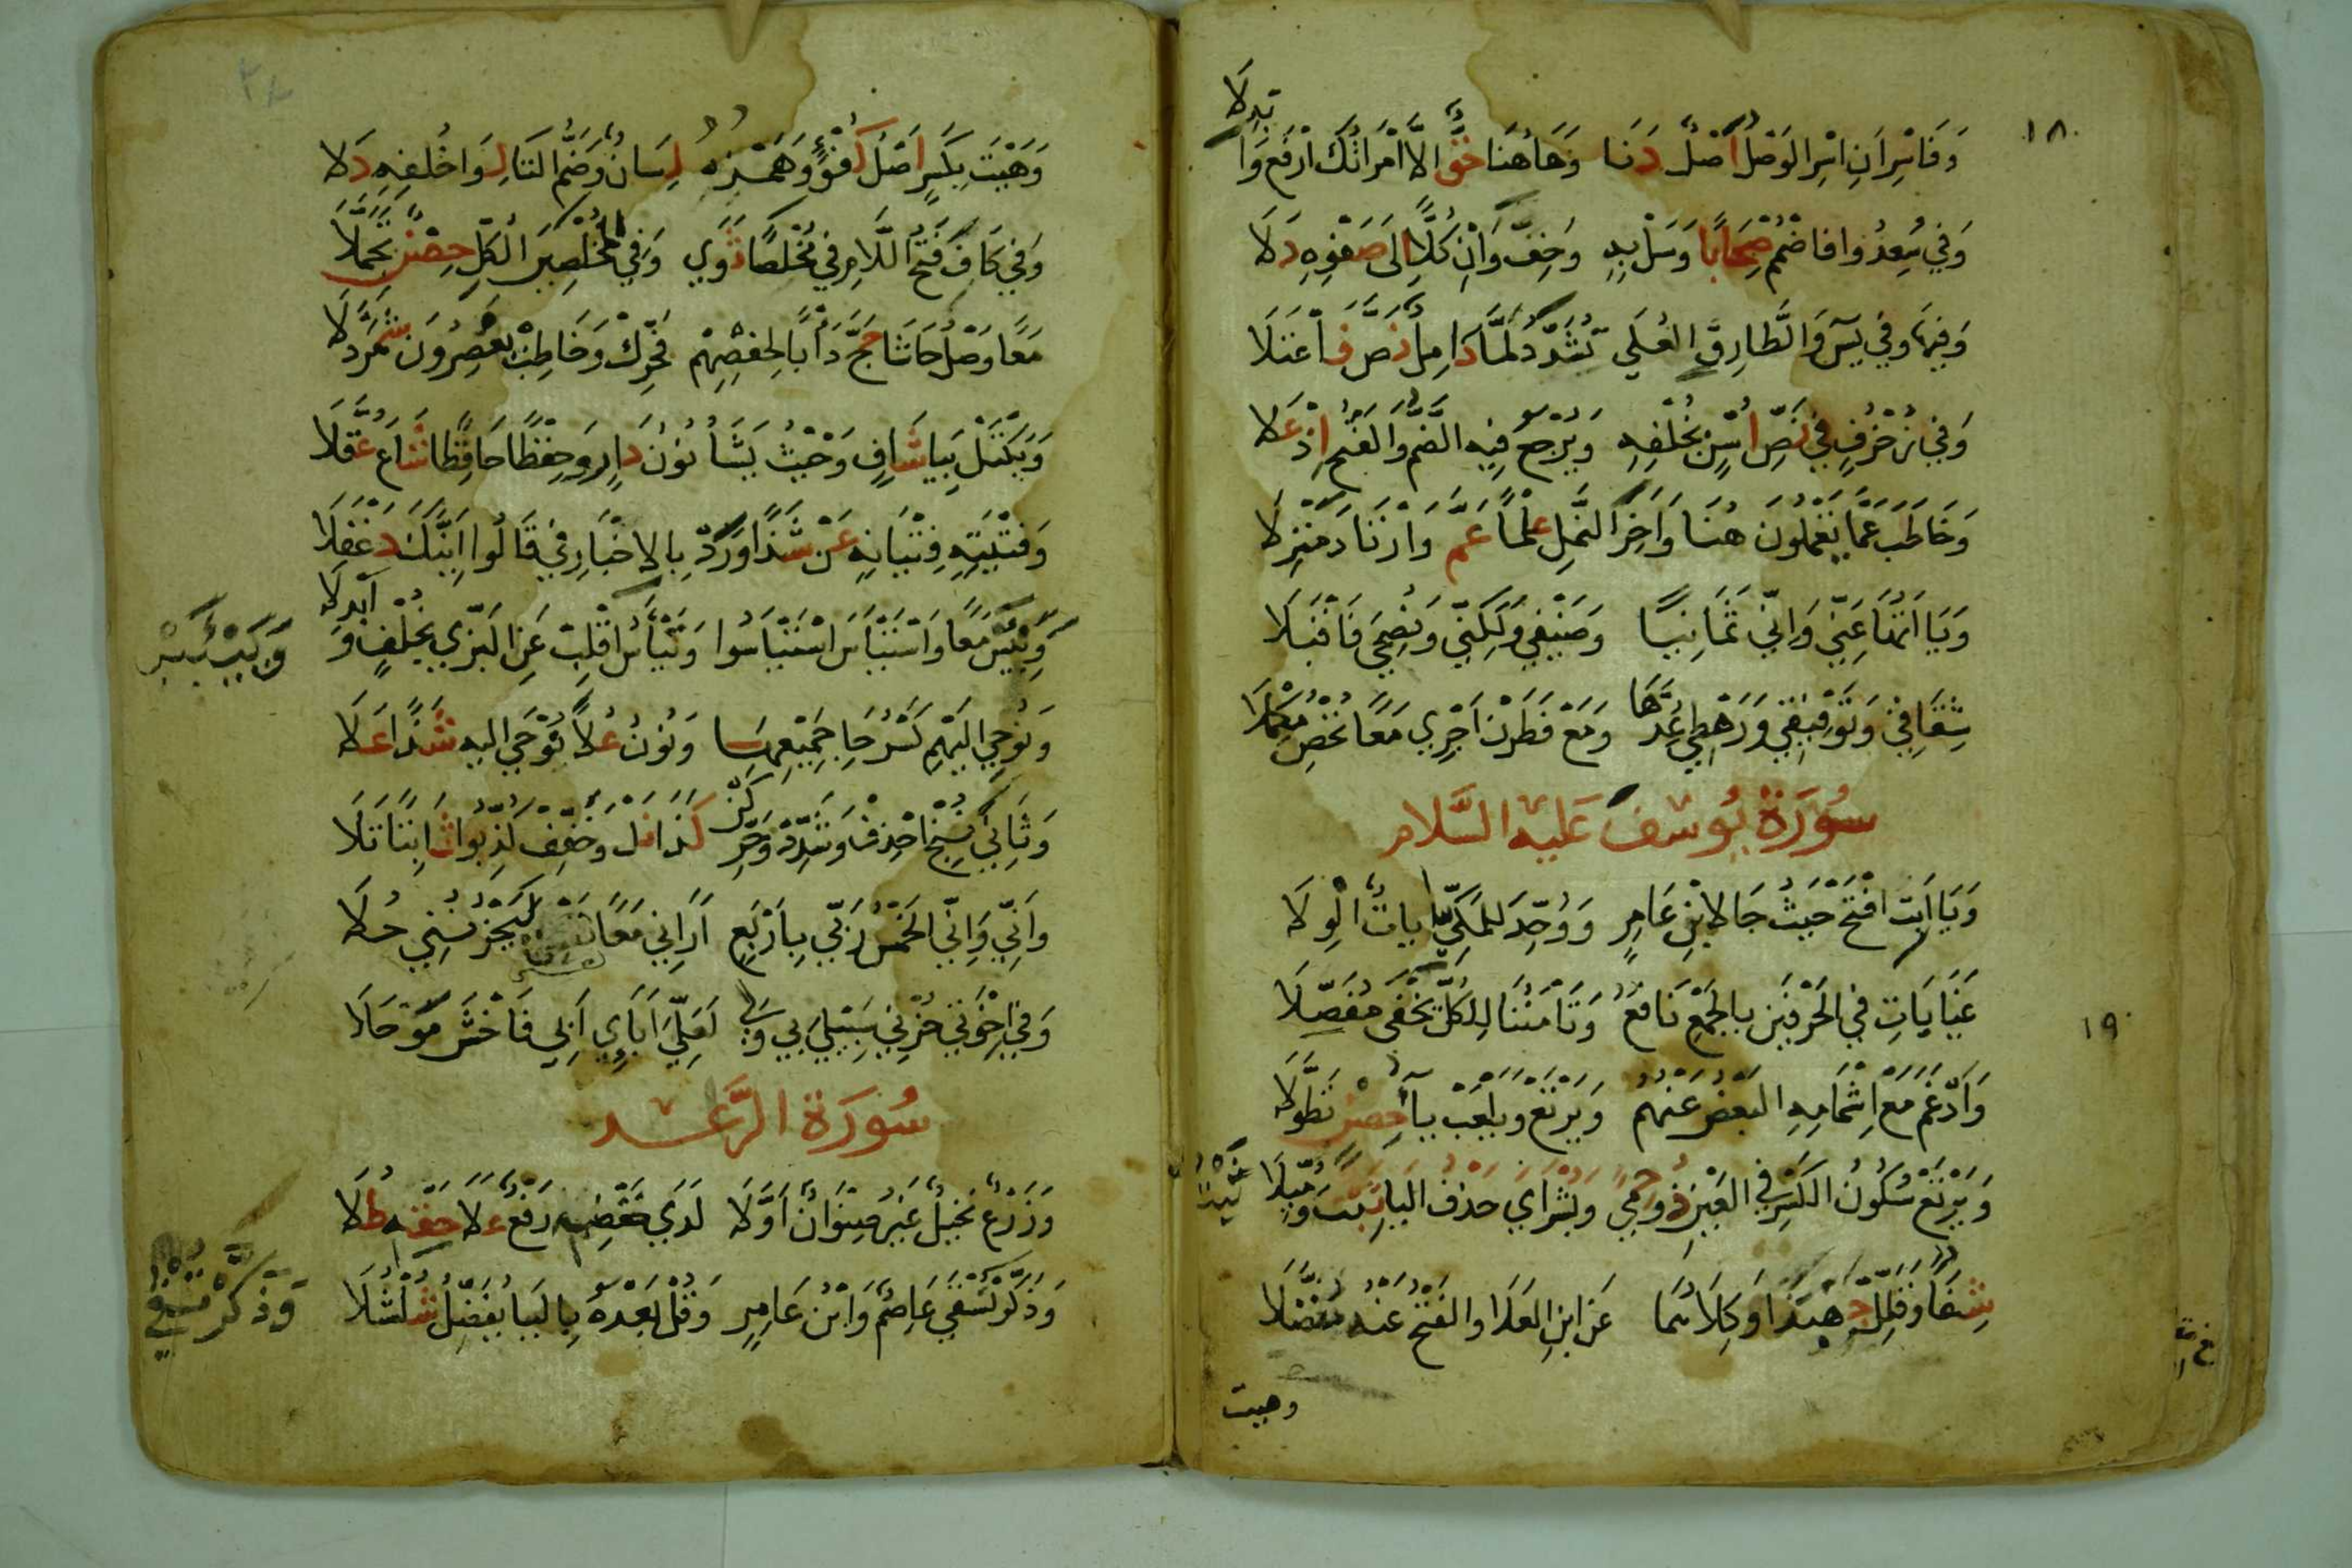 ١٨٠
وَفَاسْرِ أَنِ اسْرِ الوَصْلُ أَصْلٌ دَنَا وَهَاهُنَا حَقٌّ الَّا امْرَاتُكَ ارْفَعْ وَا
بْدِلَا
وَفِي سُعِدُوا فَاضْمُمْ صِحَابًا وَسَلْ بِهِ وَخِفُّ وَإِنْ كُلًّا إِلَى صَفْوِهِ دَلَا
وَفِيهَا وَفِي يسٓ وَالطَّارِقِ العُلَى تُشَدَّدُ لَمَّا كَامِلٌ نَصَّ فَاعْتَلَا
وَفِي زُخْرُفٍ فِي نَصِّ لُسْنٍ بِخُلْفِهِ وَيُرْجَعُ فِيهِ الضَّمُّ وَالفَتْحُ إِذْ عَلَا
وَخَاطَبَ عَمَّا يَعْمَلُونَ هُنَا وَآخِرَ النَّمْلِ عِلْمًا عَمَّ وَارْتَادَ مَنْزِلَا
وَيَا أَتُّهَا عَنِّي وَإِنِّي ثَمَانِيًا وَضَيْفِي وَلَكِنِّي وَنُصْحِيَ فَاقْبَلَا
شِقَاقِي وَتَوْفِيقِي وَرَهْطِي عُدَّهَا وَمَعْ فَطَرَنْ أَجْرِي مَعًا تُحْصِ مُكْمِلَا
سُورَةُ يُوسُفَ عَلَيْهِ السَّلَام
وَيَا أَبَتِ افْتَحْ حَيْثُ جَا لِابْنِ عَامِرٍ وَوُحِّدَ لِلْمَكِّيِّ آيَاتٌ الْوِلَا
غَيَابَاتِ فِي الحَرْفَيْنِ بِالجَمْعِ نَافِعٌ وَتَأْمَنُنَا لِلْكُلِّ يَخْفَى مُفَصَّلَا
١٩٠
وَأَدْغَمَ مَعْ إِشْمَامِهِ البَعْضُ عَنْهُمْ وَيَرْتَعْ وَيَلْعَبْ يَاءُ حِصْنٍ تَطَوَّلَا
وَيَرْتَعْ سُكُونُ الكَسْرِ فِي العَيْنِ ذُو حِمًى وَبُشْرَايَ حَذْفُ اليَاءِ ثَبْتٌ وَمُيِّلَا
شِفَاءً وَقَلِّلْ جِهْبِذًا وَكِلَاهُمَا عَنِ ابْنِ العَلَا وَالفَتْحُ عَنْهُ تَفَضَّلَا
وهيت
وَهَيْتَ بِكَسْرٍ أَصْلُ كُفْؤٍ وَهَمْزُهُ لِسَانٌ وَضَمُّ التَّا لِوَا خُلْفِهِ دَلَا
وَفِي كَافَ فَتْحُ اللَّامِ فِي مُخْلَصًا ثَوَى وَفِي المُخْلَصِينَ الكُلِّ حِصْنٌ تَجَمَّلَا
مَعًا وَصْلُ حَاشَا حَجَّ دَأْبًا لِحَفْصِهِمْ فَحَرِّكْ وَخَاطِبْ يَعْصِرُونَ شَمَرْدَلَا
وَيَكْتَلْ بِيَا شَافٍ وَحَيْثُ يَشَاءُ نُونُ دَارٍ وَحِفْظًا حَافِظًا شَاعَ عُقَّلَا
وَفِتْيَتِهِ فِتْيَانِهِ عَنْ شَذًا وَرُدْ بِالاخْبَارِ فِي قَالُوا أَئِنَّكَ دَغْفَلَا
وَيَيْئَسْ مَعًا وَاسْتَيْأَسَ اسْتَيْأَسُوا وَتَيْأَسُ اقْلِبْ عَنِ البَزِّي بِخُلْفٍ وَ
أَبْدِلَا
وَيَيْئَسْ
وَنُوحِي إِلَيْهِمْ كَسْرُ حَاءٍ جَمِيعِهَا وَنُونٌ عُلًا نُوحِي إِلَيْهِ شَذًا عَلَا
وَثَانِيَ نُنْجِ احْذِفْ وَشَدِّدْ وَحَرِّكَنْ كَذَا نَلْ وَخَفِّفْ كُذِّبُوا ثَابِتًا تَلَا
وَأَنِّي وَإِنِّي الخَمْسُ رَبِّي بِأَرْبَعٍ أَرَانِي مَعًا لَيَحْزُنُنِي حُلَا
وَفِي إِخْوَتِي حُزْنِي سَبِيلِيَ بِي وَلِي لَعَلِّي آبَاءِي أَبِي فَاخْشَ مَوْحَلَا
سُورَةُ الرَّعْد
وَزَرْعٌ نَخِيلٌ غَيْرُ صِنْوَانٌ أَوَّلَا لَدَى خَفْضِهَا رَفْعٌ عَلَا حَقُّهُ طُلَا
وَذَكَّرَ تُسْقَى عَاصِمٌ وَابْنُ عَامِرٍ وَقُلْ بَعْدَهُ بِاليَا يُفَضِّلُ شُلْشُلَا
وَذَكَّرَ تُسْقَى